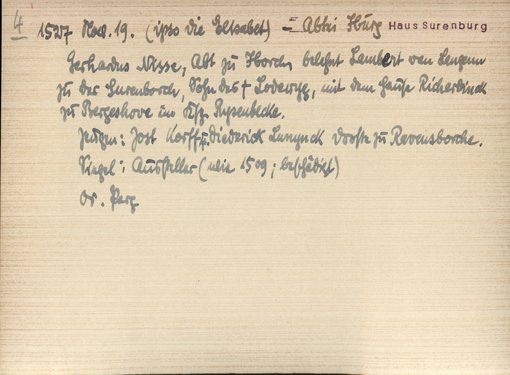 4 1527 Nov. 19. (ipso die Elisabet) = Abtei Iburg Haus Surenburg
Gerhardus Nisse, Abt zu Iborch, belehnt Lambert van Langenn
zu der Surenborch, Sohn des † Lodewyg, mit dem Hause Richardinck
zu Bergeshove im Ksp. Rysenbecke.
Zeugen: Jost Korff u. Diederick Lunynck Droste zu Ravensborche.
Siegel: Aussteller (wie 1509; beschädigt)
Or. Perg.